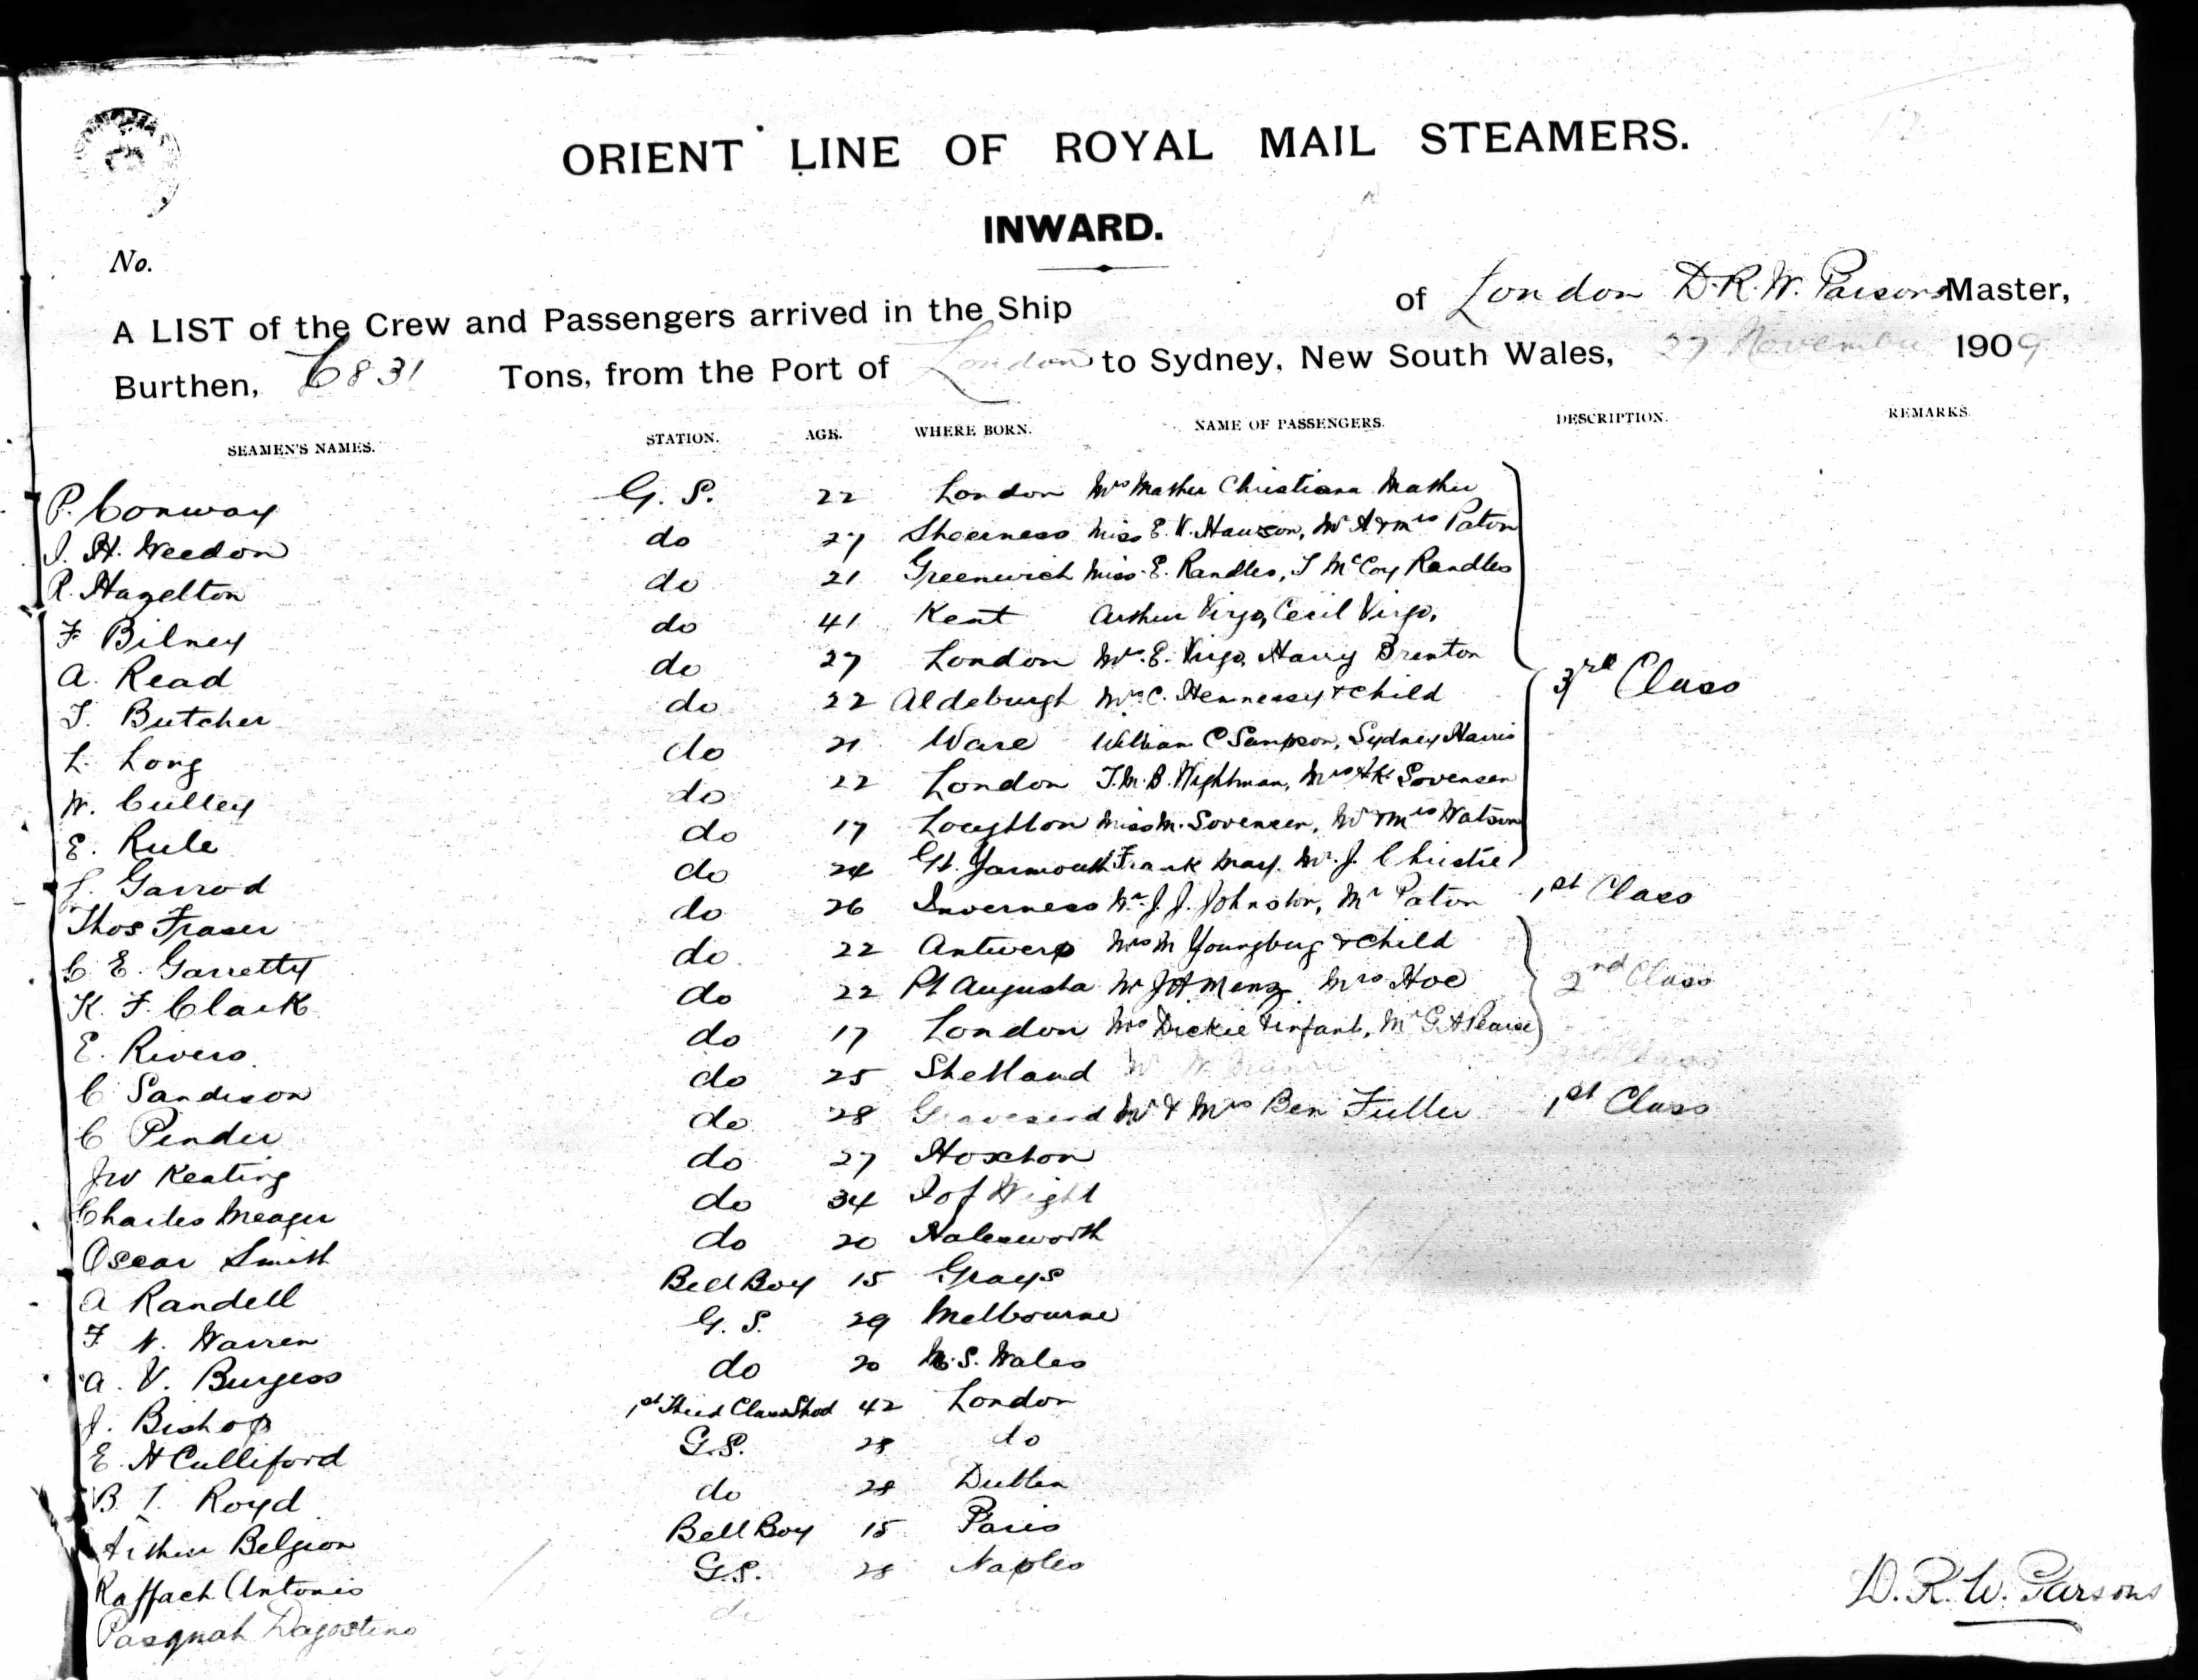 ORIENT LINE OF ROYAL MAIL STEAMERS.
INWARD.
No.
A LIST of the Crew and Passengers arrived in the Ship of London D.R.W. Parsons Master,
Burthen, 6831 Tons, from the Port of London to Sydney, New South Wales, 27 November 1909
SEAMEN'S NAMES. STATION. AGE. WHERE BORN. NAME OF PASSENGERS. DESCRIPTION. REMARKS.
P. Conway G. S. 22 London Mrs Mather Christiana Mather
J. H. Weedon do 27 Sheerness Miss E. V. Hawson, Mr A & Mrs Paton
R. Hazelton do 21 Greenwich Miss E. Randles, J McCoy Randles
F Bilney do 41 Kent Arthur Virgo, Cecil Virgo,
A. Read do 27 London Mr. E. Virgo, Harry Brenton
J. Butcher do 22 Aldeburgh Mrs C. Hennessy & child 3rd Class
L. Long do 21 Ware William C Sampson, Sydney Harris
W. Culley do 22 London J. M. B. Wightman, Mrs A K Sovensen
E. Rule do 17 Loughton Miss M. Sovensen, Mr & Mrs Watson
J. Garrod do 24 Gt. Yarmouth Frank May. Mr. J. Christie
Thos Fraser do 26 Inverness Mr. J. J. Johnston, Mr Paton 1st Class
C E. Garretty do 22 Antwerp Mrs M Youngberg & child
K. F. Clark do 22 Pt Augusta Mr J H Menz Mrs Hoe 2nd Class
E. Rivers do 17 London Mrs Dickie & infant, Mr G. A Pearce
C Sandison do 25 Shetland
C Pender do 28 Gravesend Mr & Mrs Ben Fuller 1st Class
JW Keating do 27 Hoxton
Charles Meager do 34 I of Wight
Oscar Smith do 20 Halesworth
A Randell Bell Boy 15 Grays
F W. Warren G. S. 29 Melbourne
A. V. Burgess do 20 N. S. Wales
J. Bishop 1st Third Class Stwd 42 London
E. H Culliford G.S. 28 do
B. T. Royd do 28 Dublin
Arthur Belgion Bell Boy 15 Paris
Raffach Antonio G.S. 28 Naples
Pasquah Dagostino do
D. R. W. Parsons